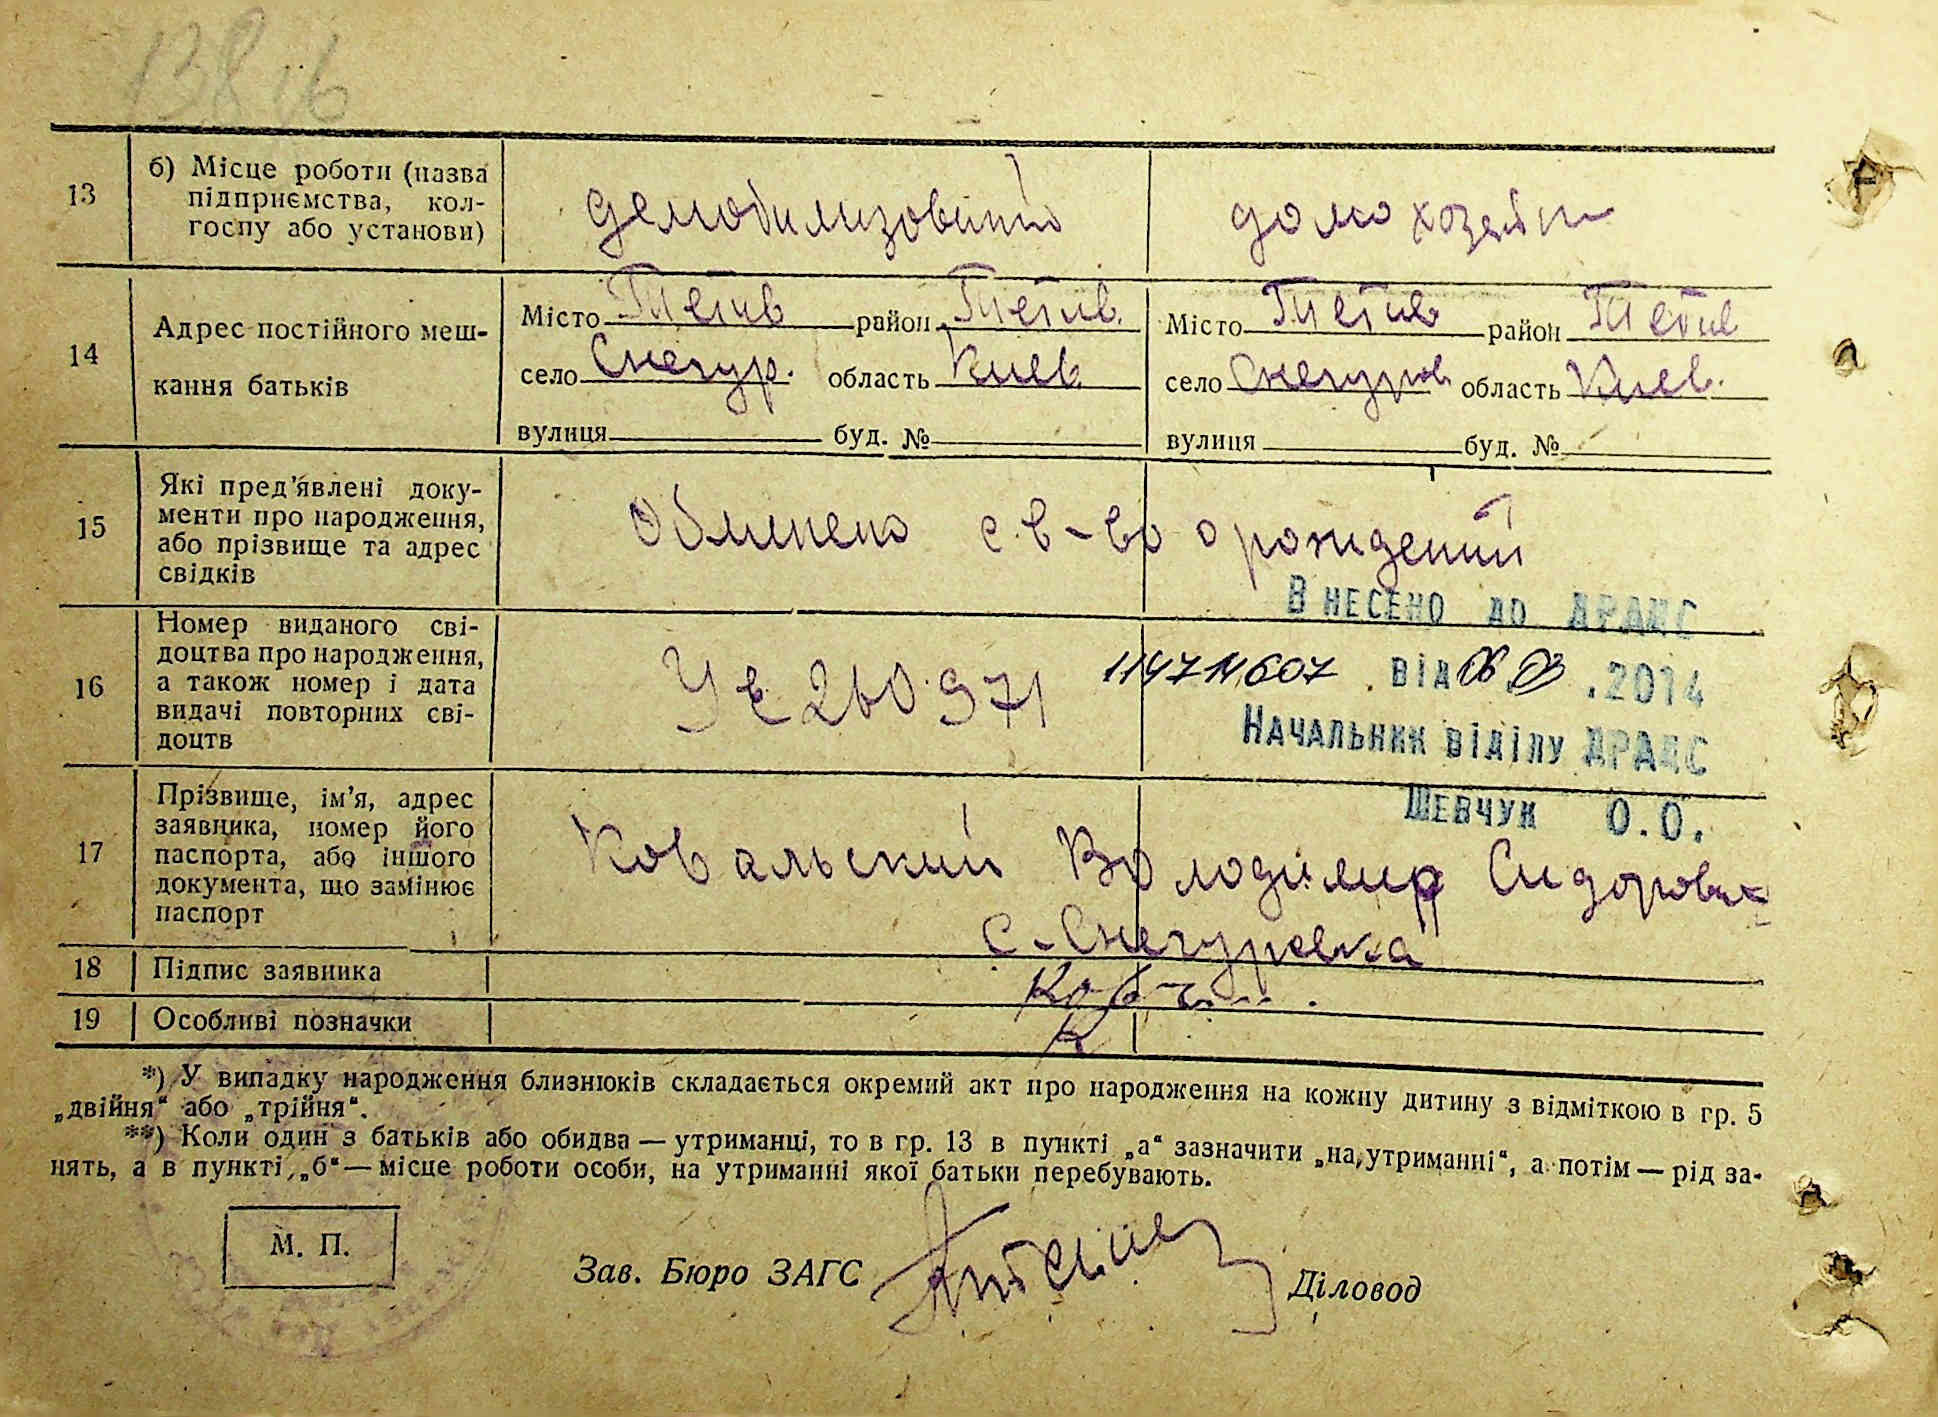 13
б) Місце роботи (назва
підприємства, кол-
госпу або установи)
демобилизований
домохозяйк
14
Адрес постійного меш-
кання батьків
Місто Тетив район Тетив.
село Снегур. область Киев.
вулиця буд. №
Місто Тетив район Тетив
село Снегуров область Киев.
вулиця буд. №
15
Які пред’явлені доку-
менти про народження,
або прізвище та адрес
свідків
Обменено св-во о рождении
16
Номер виданого сві-
доцтва про народження,
а також номер і дата
видачі повторних сві-
доцтв
УЕ 260971
Внесено до ДРАЦС
від .2014
Начальник відділу ДРАЦС
Шевчук О.О.
17
Прізвище, ім’я, адрес
заявника, номер його
паспорта, або іншого
документа, що замінює
паспорт
Ковальский Володимир Сидорович
с-Снегуревка
18
Підпис заявника
19
Особливі позначки
*) У випадку народження близнюків складається окремий акт про народження на кожну дитину з відміткою в гр. 5
„двійня“ або „трійня“.
**) Коли один з батьків або обидва — утриманці, то в гр. 13 в пункті „а“ зазначити „на утриманні“, а потім — рід за-
нять, а в пункті „б“ — місце роботи особи, на утриманні якої батьки перебувають.
М. П.
Зав. Бюро ЗАГС
Діловод